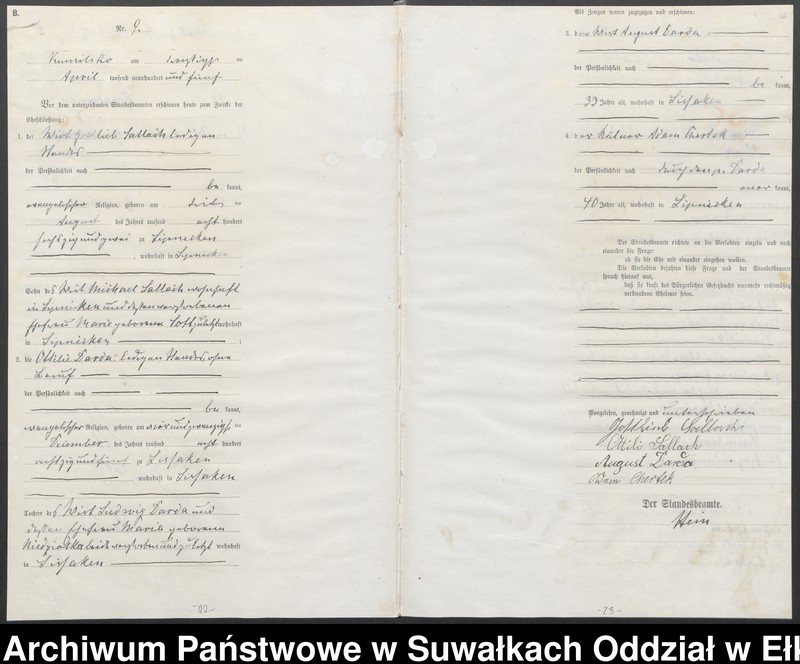 B.
Nr. 9.
Kumilsko am dreißigsten
April tausend neunhundert und fünf
Vor dem unterzeichneten Standesbeamten erschienen heute zum Zwecke der
Eheschließung:
1. der Wirt Gottlieb Sallach ledigen
Standes
der Persönlichkeit nach
be kannt,
evangelischer Religion, geboren am
August des Jahres tausend acht hundert
sechszig und zwei zu Lipnicken
, wohnhaft in Lipnicken
Sohn des Wirt Michael Sallach wohnhaft
in Lipnicken und dessen verstorbenen
Ehefrau Marie geborenen zuletzt wohnhaft
in Lipnicken ;
2. die Ottilie Darda: ledigen Standes, ohne
Beruf
der Persönlichkeit nach
be kannt,
evangelischer Religion, geboren am vier und zwanzigsten
Dezember des Jahres tausend acht hundert
achtzig und fünf zu Lissaken
, wohnhaft in Lissaken
Tochter des Wirt Ludwig Darda und
dessen Ehefrau Marie geborenen
Niedziolka beide verstorben und zuletzt wohnhaft
in Lissaken
-22-
Als Zeugen waren zugezogen und erschienen:
3. der Wirt August Darda
der Persönlichkeit nach
be kannt,
33 Jahre alt, wohnhaft in Lissaken
4. der Kätner Adam Chertek
der Persönlichkeit nach durch den p. Darda
aner kannt,
40 Jahre alt, wohnhaft in Lipnicken
Der Standesbeamte richtete an die Verlobten einzeln und nach
einander die Frage:
ob sie die Ehe mit einander eingehen wollen.
Die Verlobten bejahten diese Frage und der Standesbeamte
sprach hierauf aus,
daß sie kraft des Bürgerlichen Gesetzbuchs nunmehr rechtmäßig
verbundene Eheleute seien.
Vorgelesen, genehmigt und unterschrieben
Ottili Sallach
August Darda
Adam Chertek
Der Standesbeamte.
Hein
-23-
Archiwum Państwowe w Suwałkach Oddział w Ełk